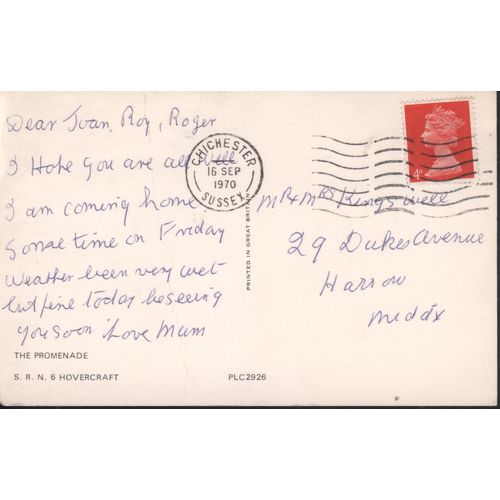 Dear Joan, Roy, Roger
I Hope you are all well
I am coming home
Sometime on Friday
Weather been very wet
but fine today be seeing
you soon Love Mum
THE PROMENADE
S. R. N. 6 HOVERCRAFT
PLC2926
PRINTED IN GREAT BRITAIN
CHICHESTER
16 SEP
1970
SUSSEX
4D
Mr & Mrs Kingswell
29 Dukes Avenue
Harrow
Middx